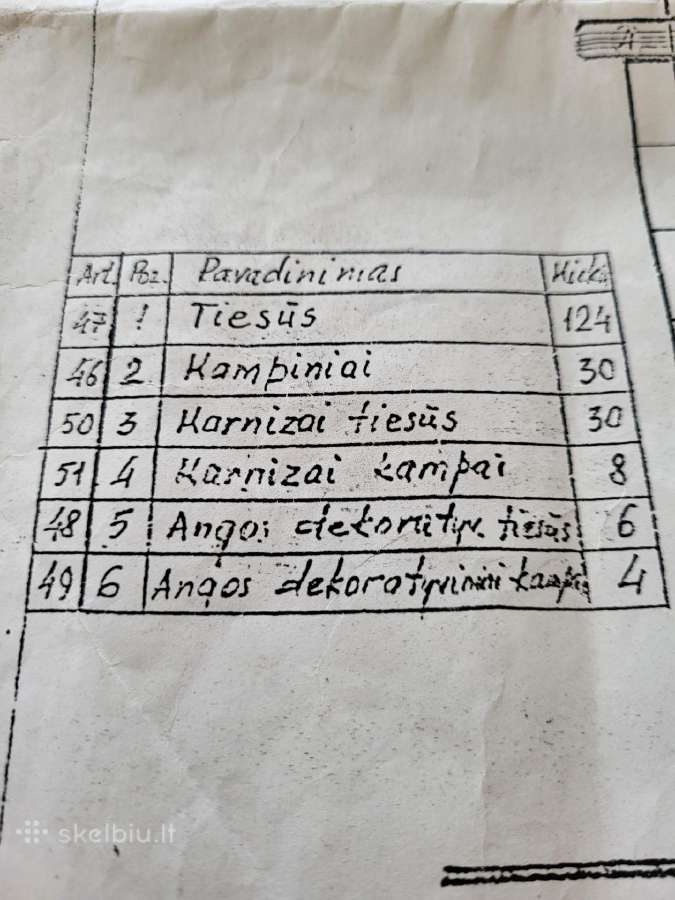 Art. Poz. Pavadinimas Kiek.
47 1 Tiesūs 124
46 2 Kampiniai 30
50 3 Karnizai tiesūs 30
51 4 Karnizai kampai 8
48 5 Angos dekoratyv. tiesūs 6
49 6 Angos dekoratyviniai 4
skelbiu.lt